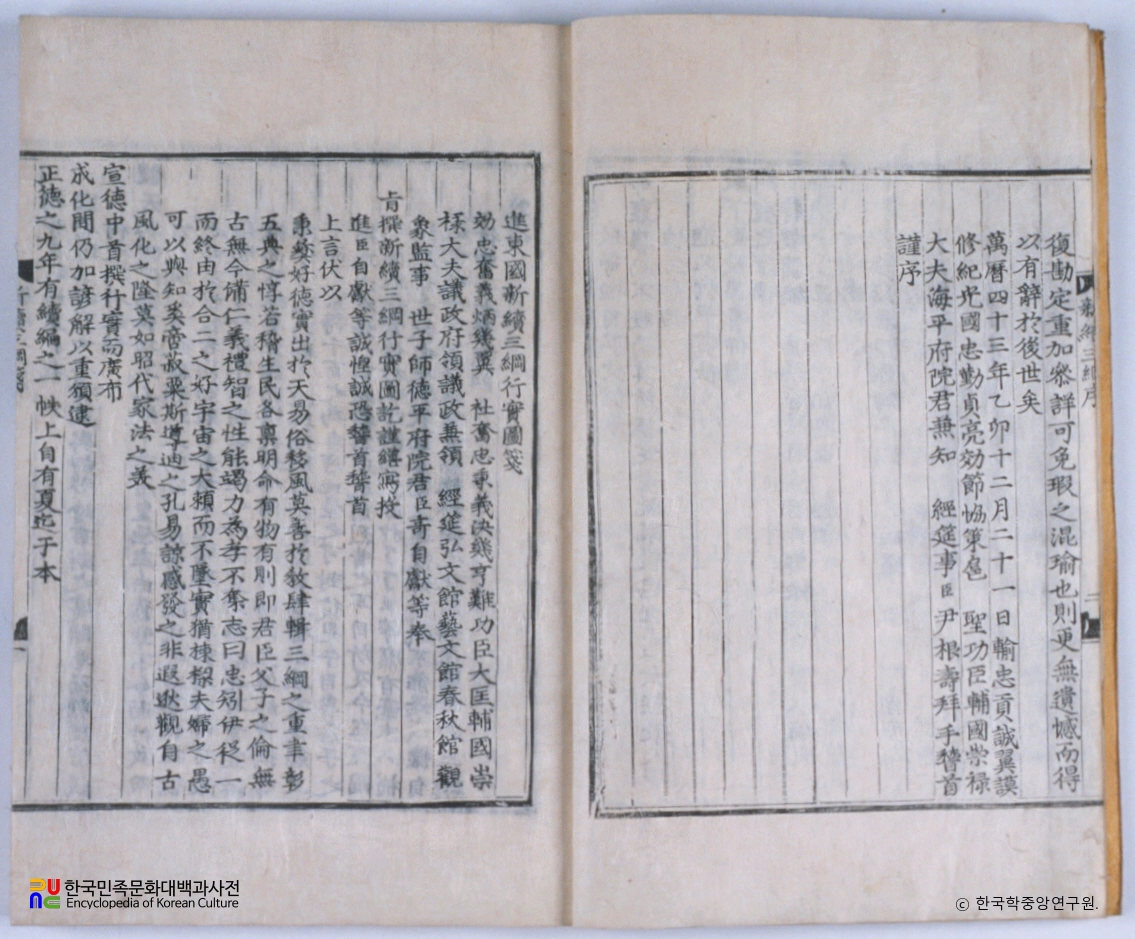 復勘定重加叅詳可免瑕之混瑜也則更無遺憾而得
以有辭於後世矣
萬曆四十三年乙卯十二月二十一日輸忠貢誠翼謨
修紀光國忠勤貞亮効節恊策扈 聖功臣輔國崇禄
大夫海平府院君兼知 經筵事臣尹根壽拜手稽首
謹序
新續三綱序
二
進東國新續三綱行實圖箋
効忠奮義炳幾翼 社奮忠秉義決幾亨難功臣大匡輔國崇
禄大夫議政府領議政兼領 經筵弘文館藝文館春秋館 觀
象監事 世子師德平府院君臣奇自獻等奉
㫖撰新續三綱行實圖訖謹繕寫投
進臣自獻等誠惶誠恐稽首稽首
上言伏以
秉彛好德實出於天易俗移風莫善於敎肆輯三綱之重聿彰
五典之惇若稽生民各禀明命有物有則即君臣父子之倫無
古無今備仁義禮智之性能竭力為孝不奪志曰忠矧伊從一
而終由於合二之好宇宙之大頼而不墜實猶棟樑夫婦之愚
可以與知奚啻菽粟斯導迪之孔易諒感發之非遐逖觀自古
風化之隆莫如昭代家法之羙
宣德中首撰行實而廣布
成化間仍加諺解以重頒逮
正德之九年有續編之一帙上自有夏迄于本
新續三綱箋
一
한국민족문화대백과사전
Encyclopedia of Korean Culture
ⓒ 한국학중앙연구원.